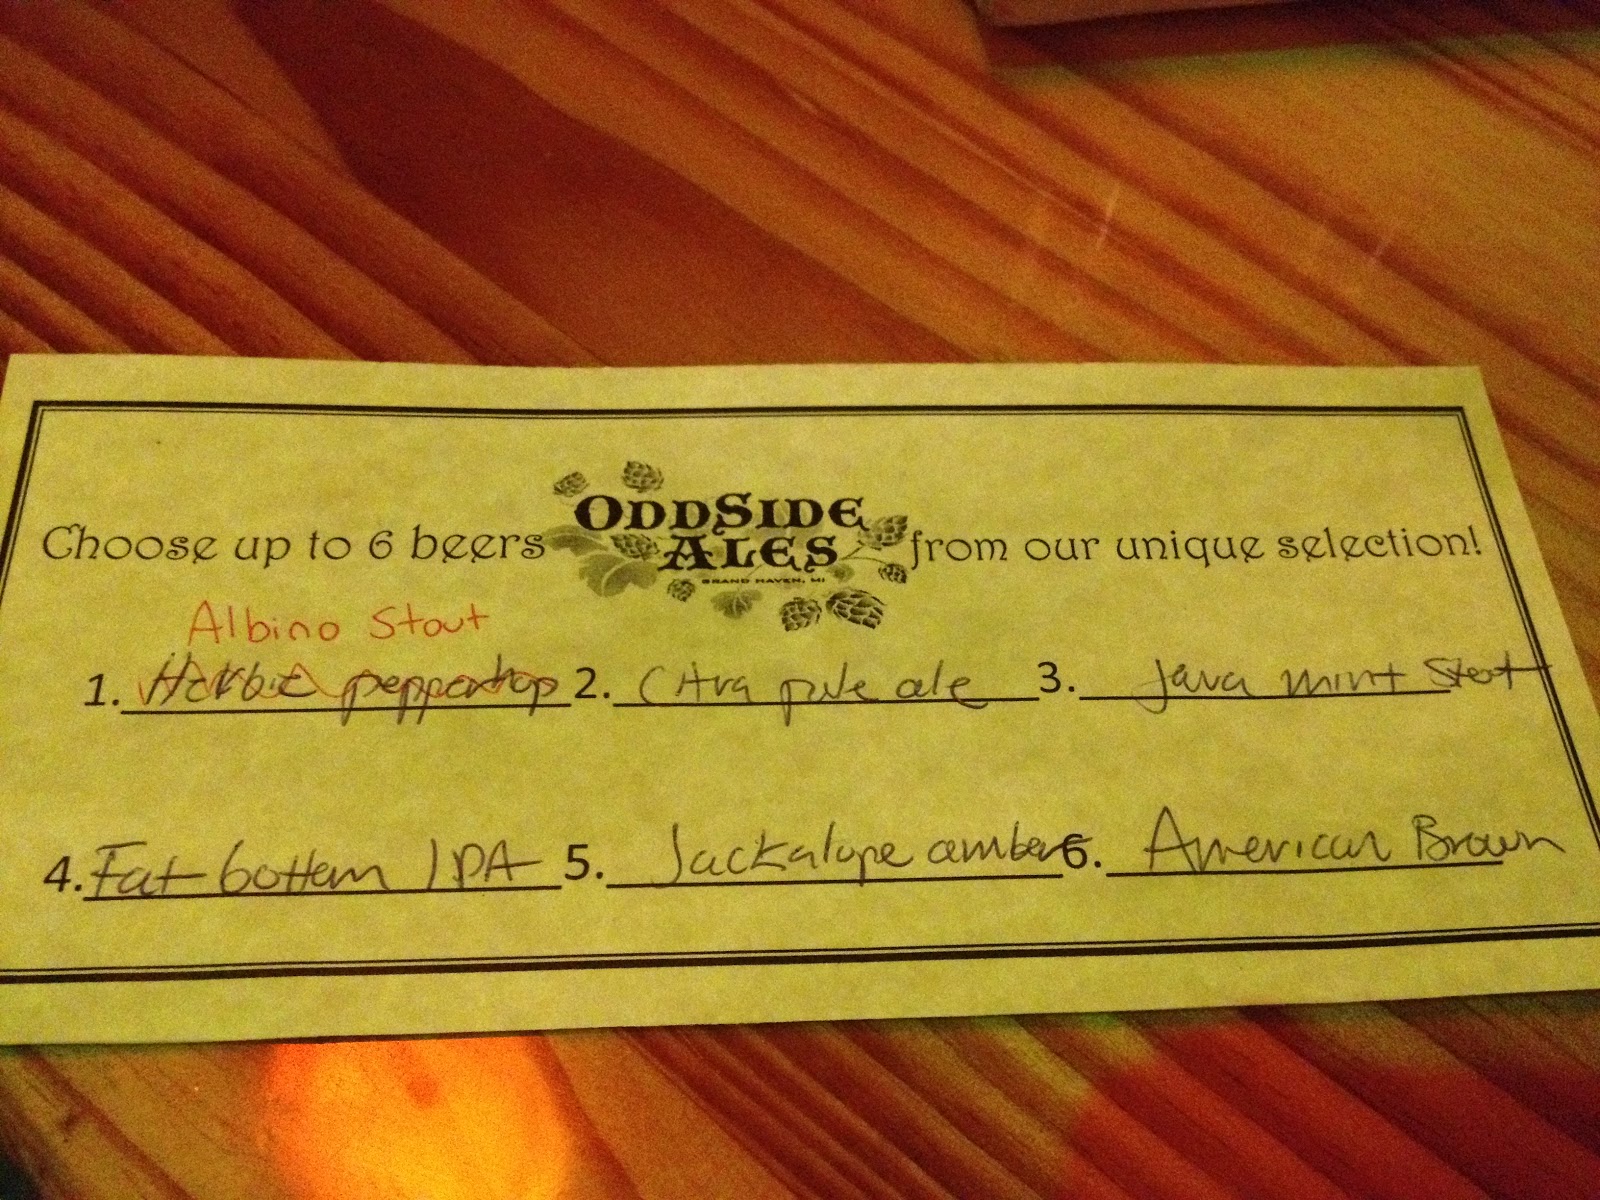 Choose up to 6 beers ODDSIDE ALES from our unique selection!
GRAND HAVEN, MI
Albino Stout
1. pepperhop 2. Citra pale ale 3. Java mint Stout
4. Fat bottom IPA 5. Jackalope amber 6. American Brown